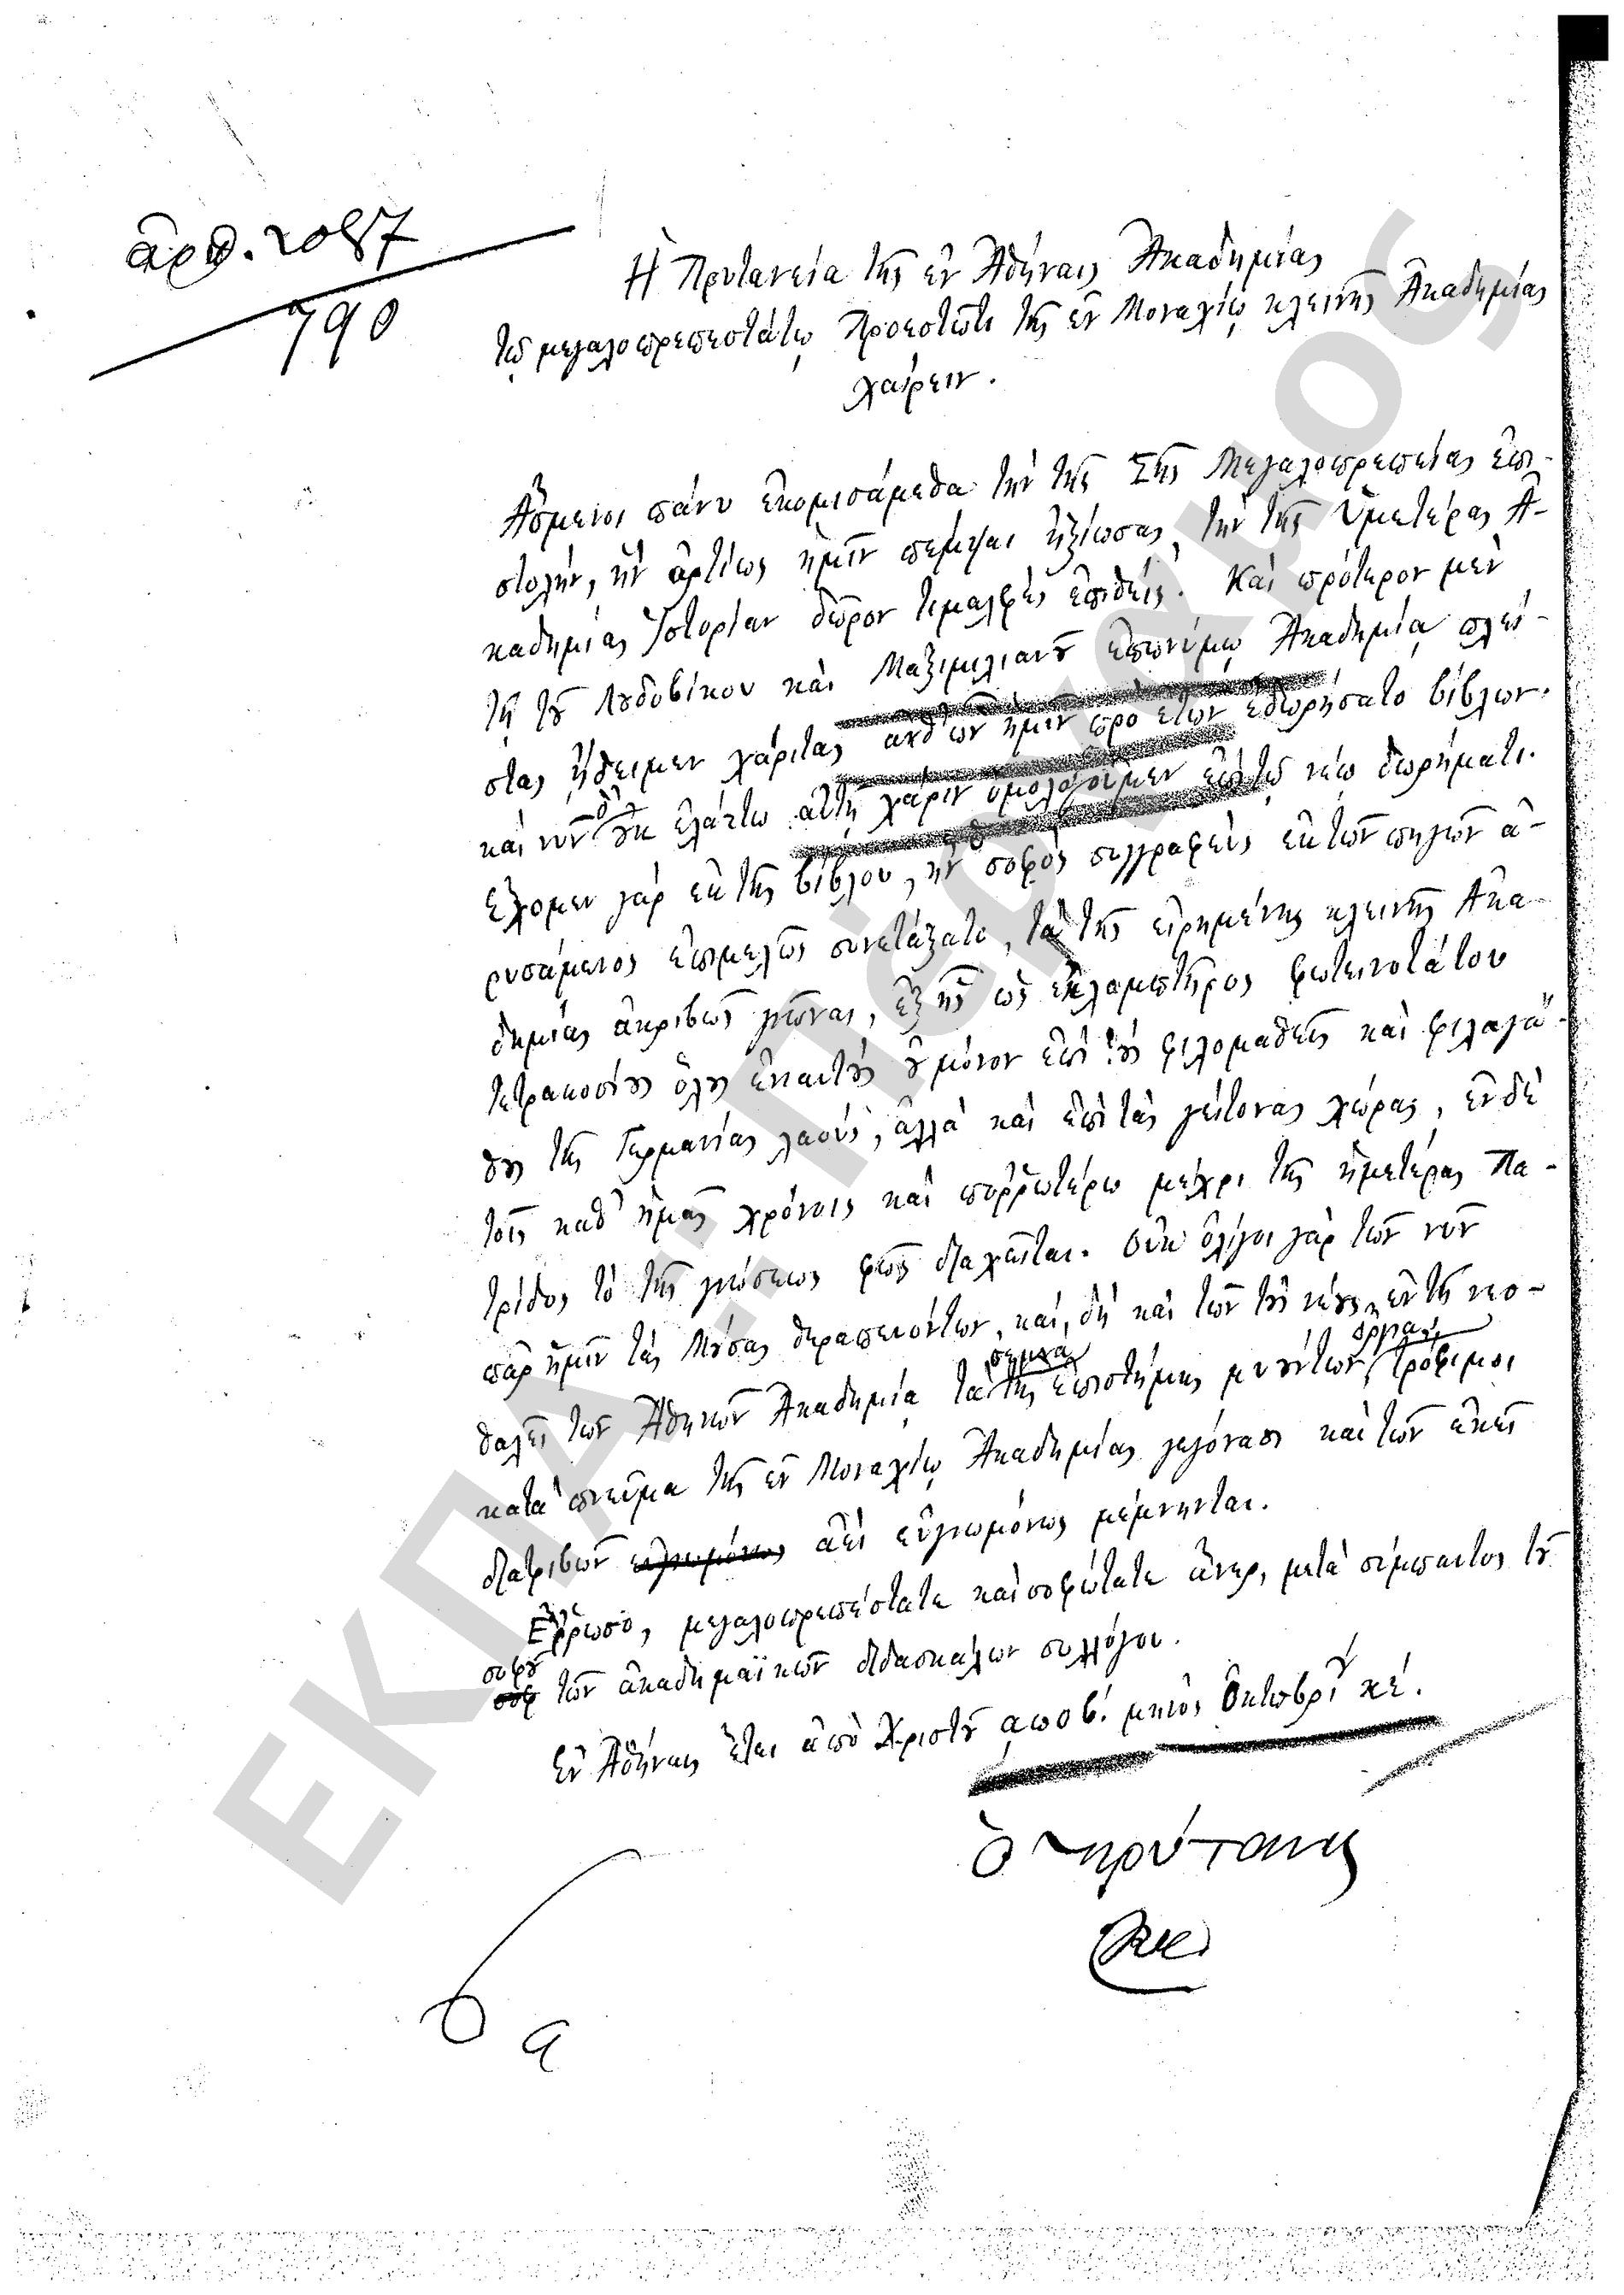 ἀριθ. 2087
790
Ἡ Πρυτανεία τῆς ἐν Ἀθήναις Ἀκαδημίας
τῷ μεγαλοπρεπεστάτῳ Προεστῶτι τῆς ἐν Μοναχίῳ κλεινῆς Ἀκαδημίας
χαίρειν.
Ἄσμενοι πάνυ ἐκομισάμεθα τὴν τῆς Σῆς Μεγαλοπρεπείας ἐπι-
στολὴν, ἣν ἀρτίως ἡμῖν πέμψαι ἠξίωσας, τὴν τῆς Ὑμετέρας Ἀ-
καδημίας Ἱστορίαν δῶρον τιμαλφὲς ἐπιθείς. Καὶ πρότερον μὲν
τῇ τοῦ Λουδοβίκου καὶ Μαξιμιλιανοῦ ἐπωνύμῳ Ἀκαδημίᾳ πλεί-
στας ᾔδειμεν χάριτας ἀνθ' ὧν ἡμῖν πρὸ ἐτῶν ἐδωρήσατο βίβλων·
καὶ νῦν δ' οὐκ ἐλάττω αὐτῇ χάριν ὁμολογοῦμεν ἐπὶ τῷ νέῳ δωρήματι.
ἔχομεν γὰρ ἐκ τῆς βίβλου, ἣν ὁ σοφὸς συγγραφεὺς ἐκ τῶν πηγῶν ἀ-
ρυσάμενος ἐπιμελῶς συνετάξατο, τὰ τῆς εἰρημένης κλεινῆς Ἀκα-
δημίας ἀκριβῶς γνῶναι, ἐξ ἧς ὡς ἐκ λαμπτῆρος φωτεινοτάτου
τετρακοσίους ὅλους ἐνιαυτοὺς οὐ μόνον ἐπὶ τοὺς φιλομαθεῖς καὶ φιλαγά-
θους τῆς Γερμανίας λαοὺς, ἀλλὰ καὶ ἐπὶ τὰς γείτονας χώρας, ἐν δὲ
τοῖς καθ' ἡμᾶς χρόνοις καὶ πορρωτέρω μέχρι τῆς ἡμετέρας Πα-
τρίδος τὸ τῆς γνώσεως φῶς διαχεῖται. Οὐκ ὀλίγοι γὰρ τῶν νῦν
παρ' ἡμῖν τὰς Μούσας θεραπευόντων, καὶ δὴ καὶ τῶν τοὺς νέους ἐν τῇ νεο-
θαλεῖ τῶν Ἀθηνῶν Ἀκαδημίᾳ τὰ σεμνὰ τῆς ἐπιστήμης μυούντων ὄργια, τρόφιμοι
κατὰ πνεῦμα τῆς ἐν Μοναχίῳ Ἀκαδημίας γεγόνασι καὶ τῶν ἐκεῖ
διατριβῶν εὐγνωμόνως ἀεὶ εὐγνωμόνως μέμνηνται.
Ἔρρωσο, μεγαλοπρεπέστατε καὶ σοφώτατε ἄνερ, μετὰ σύμπαντος τοῦ
σοφοῦ τῶν ἀκαδημαϊκῶν διδασκάλων συλλόγου.
Ἐν Ἀθήναις ἔτει ἀπὸ Χριστοῦ ͵αωοβʹ. μηνὸς Ὀκτωβρίου κέ.
Ὁ πρύτανις